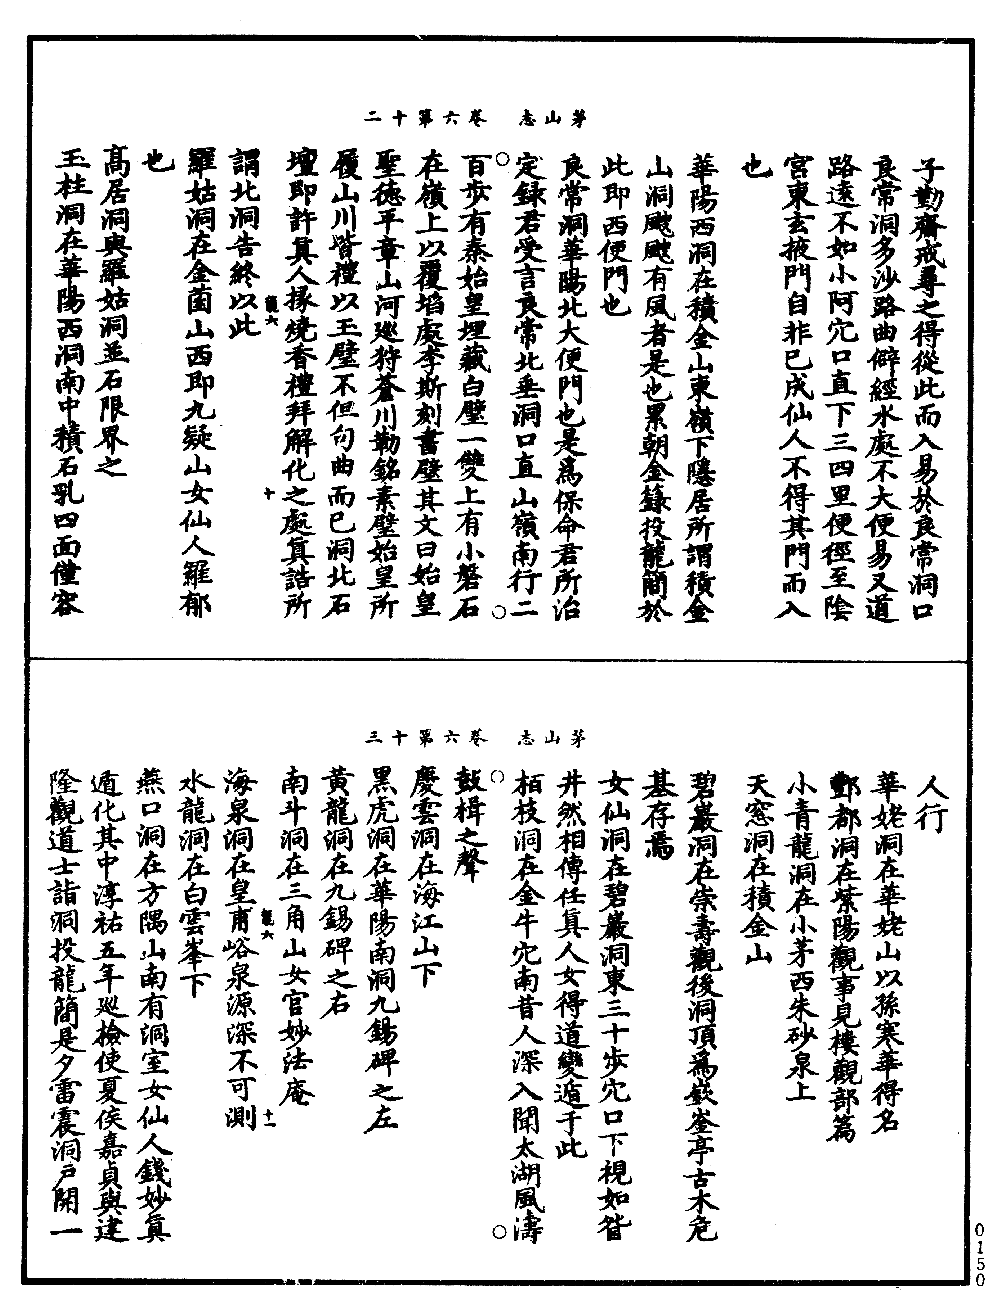 茅山志　卷六第十二
子勤齋戒尋之得從此而入易於良常洞口
良常洞多沙路曲僻經水處不大便易又道
路遠不如小阿穴口直下三四里便徑至陰
宮東玄掖門自非已成仙人不得其門而入
也
華陽西洞在積金山東嶺下隱居所謂積金
山洞颼颼有風者是也累朝金籙投龍簡於
此即西便門也
良常洞華陽北大便門也是為保命君所治
定錄君受言良常北垂洞口直山嶺南行二
百步有秦始皇埋藏白璧一雙上有小磐石
在嶺上以覆埳處李斯刻書璧其文曰始皇
聖德平章山河巡狩蒼川勒銘素璧始皇所
履山川皆禮以玉璧不但句曲而已洞北石
壇即許真人掾燒香禮拜解化之處真誥所
龍六　十
謂北洞告終以此
羅姑洞在金菌山西即九疑山女仙人羅郁
也
高居洞與羅姑洞並石限界之
玉柱洞在華陽西洞南中積石乳四面僅容
茅山志　卷六第十三
人行
華姥洞在華姥山以孫寒華得名
酆都洞在紫陽觀事見樓觀部篇
小青龍洞在小茅西朱砂泉上
天窓洞在積金山
碧巖洞在崇壽觀後洞頂為嶔崟亭古木危
基存焉
女仙洞在碧巖洞東三十步穴口下視如眢
井然相傳任真人女得道變遁于此
栢枝洞在金牛穴南昔人深入聞太湖風濤
鼓楫之聲
慶雲洞在海江山下
黑虎洞在華陽南洞九錫碑之左
黃龍洞在九錫碑之右
南斗洞在三角山女官妙法庵
龍六　十一
海泉洞在皇甫峪泉源深不可測
水龍洞在白雲峯下
燕口洞在方隅山南有洞室女仙人錢妙真
遁化其中淳祐五年巡檢使夏侯嘉貞與建
隆觀道士詣洞投龍簡是夕雷震洞戶開一
0150